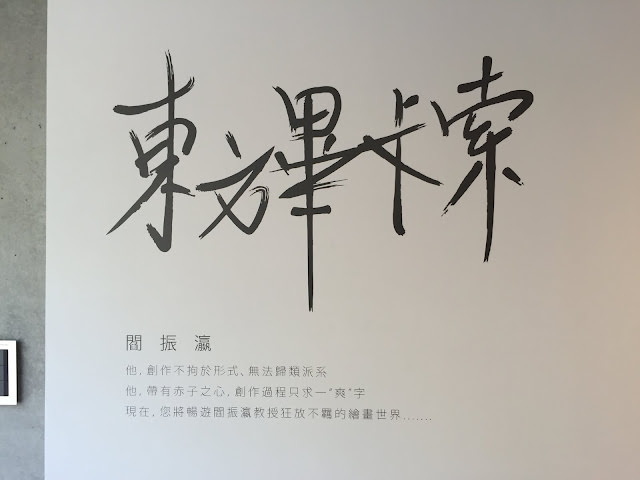 東方畢卡索
閻振瀛
他,創作不拘於形式、無法歸類派系
他,帶有赤子之心,創作過程只求一"爽"字
現在,您將暢遊閻振瀛教授狂放不羈的繪畫世界.......